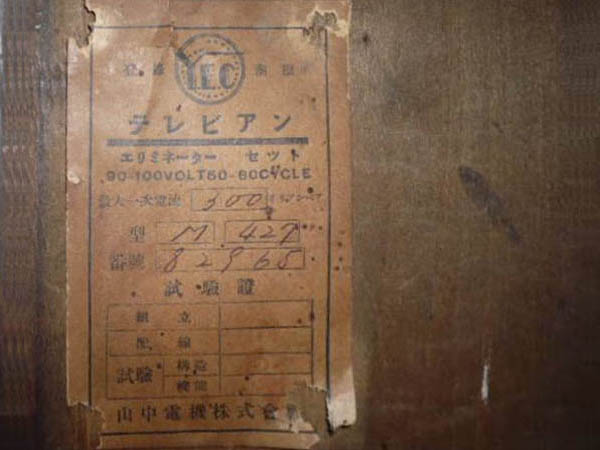 登錄 商標
テレビアン
エリミネーター セット
90-100VOLT50-60CYCLE
最大一次電流 300 ミリアンペア
型 M 427
番號 82965
試驗證
組立
配線
試驗 構造
機能
山中電機株式會